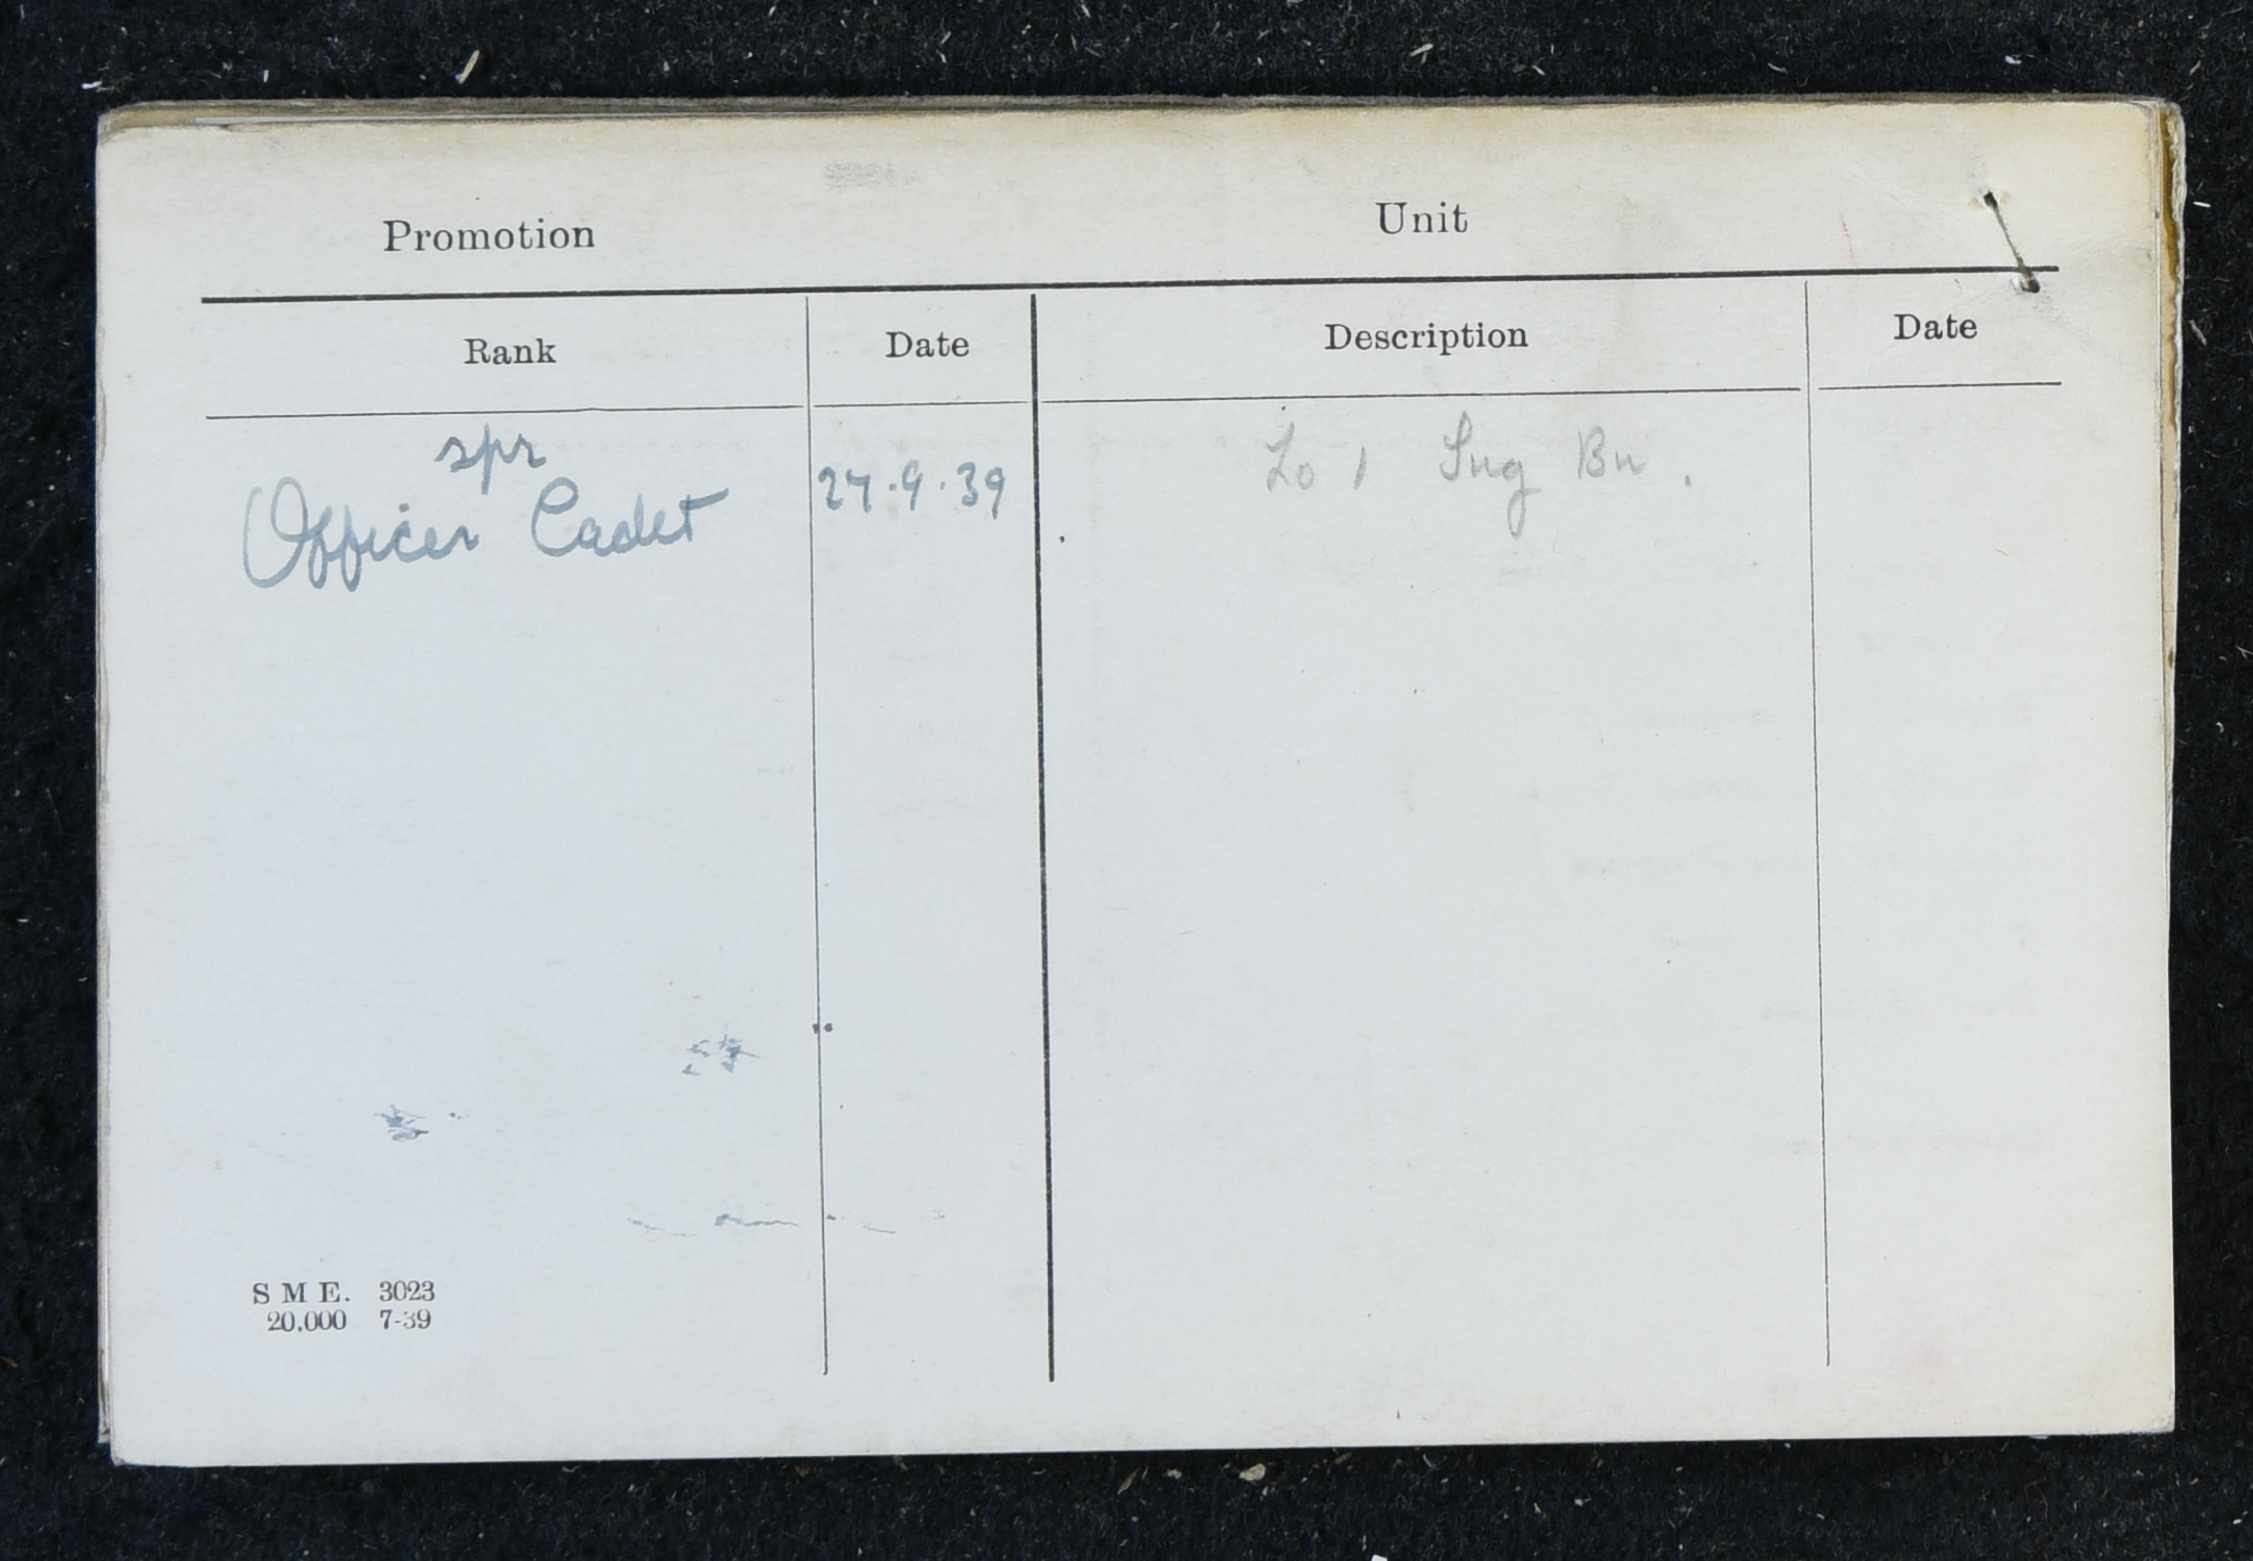 Promotion Unit
Rank Date Description Date
spr
Officer Cadet 27.9.39 Bn.
S M E. 3023
20,000 7-39